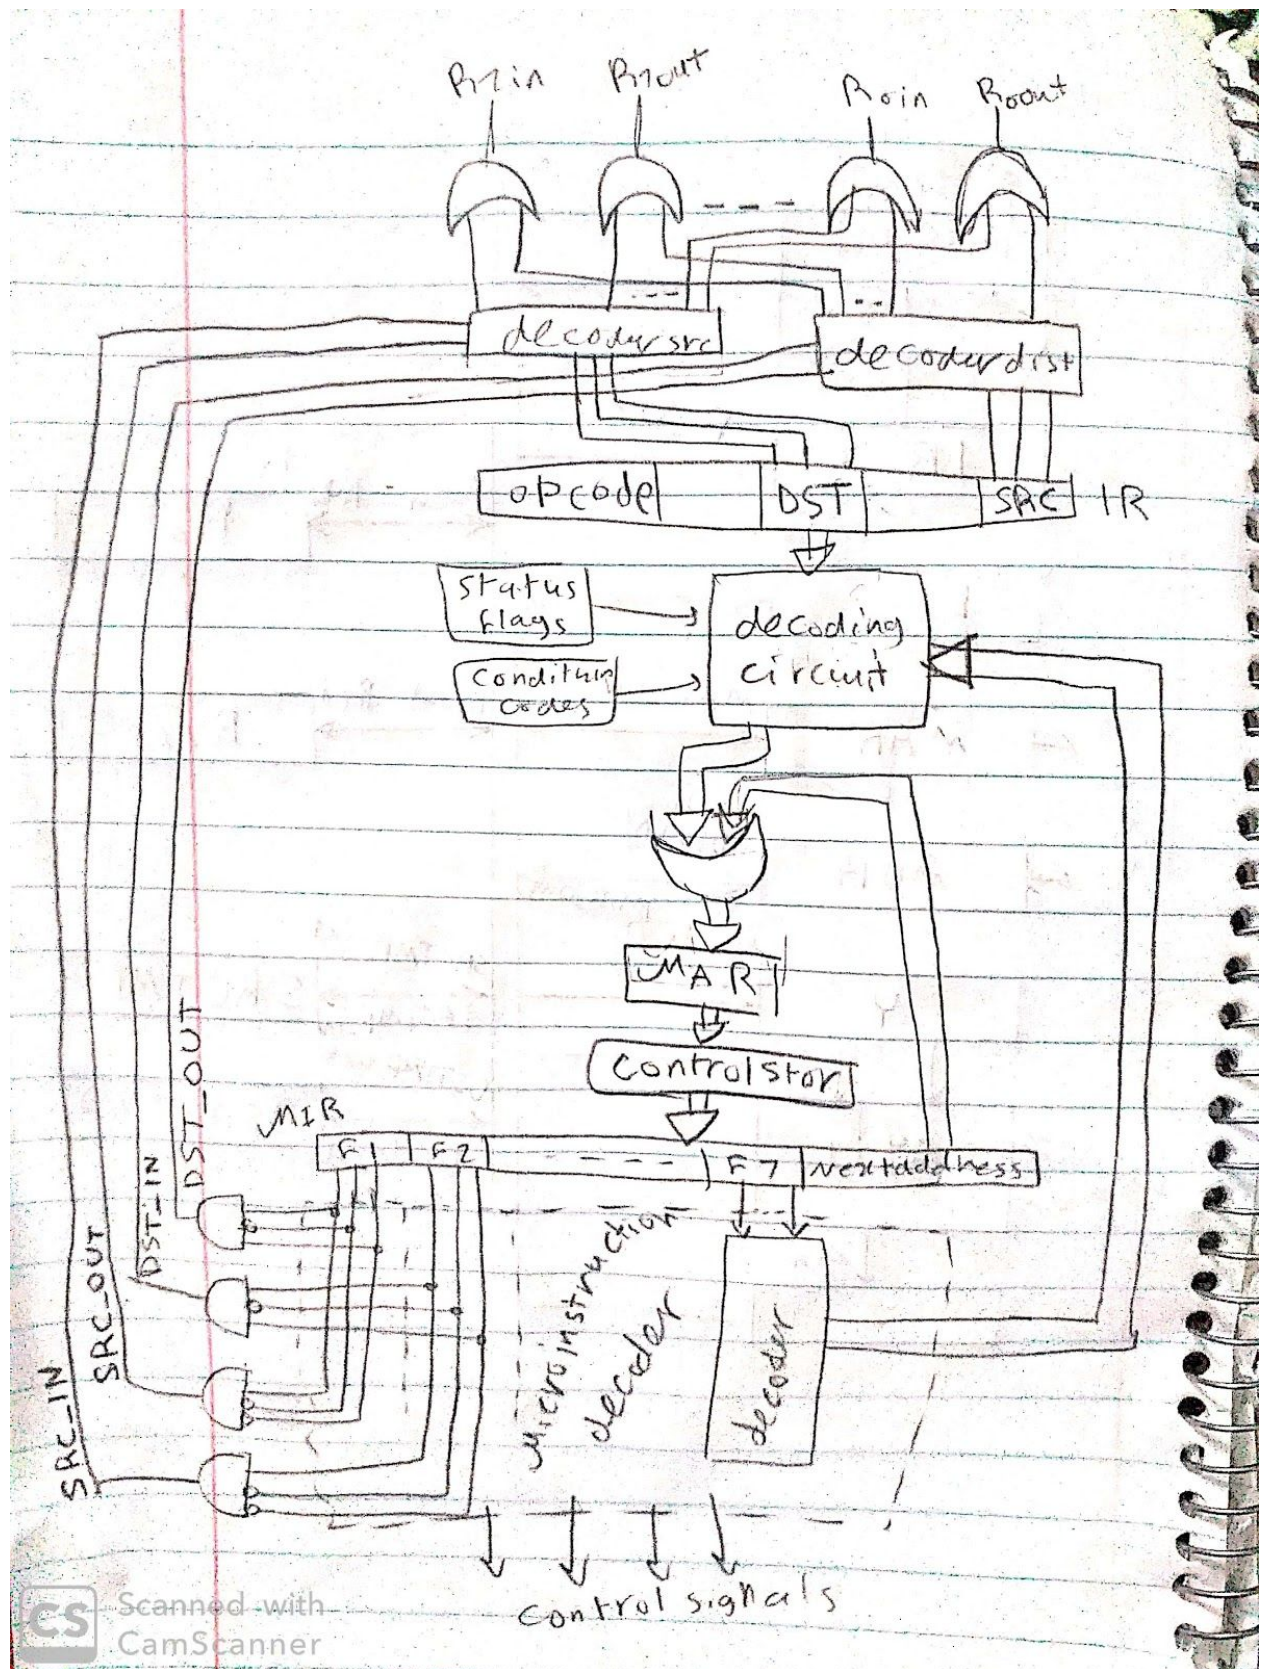 R7in R7out R0in R0out
decoder src
decoder dist
opcode DST SRC IR
status
flags
decoding
circuit
condition
codes
MAR
control stor
MIR
F1 F2 F7 Next address
DST_OUT
DST_IN
SRC_OUT
SRC_IN
Microinstruction
decoder
decoder
control signals
CS Scanned with
CamScanner